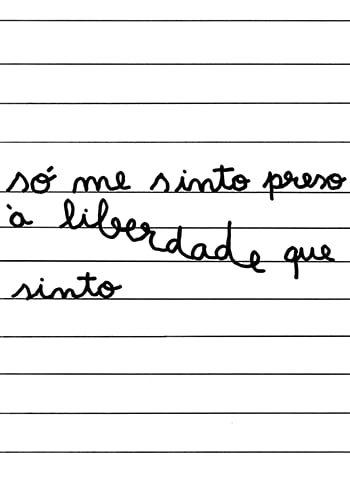 só me sinto preso
à liberdade que
sinto